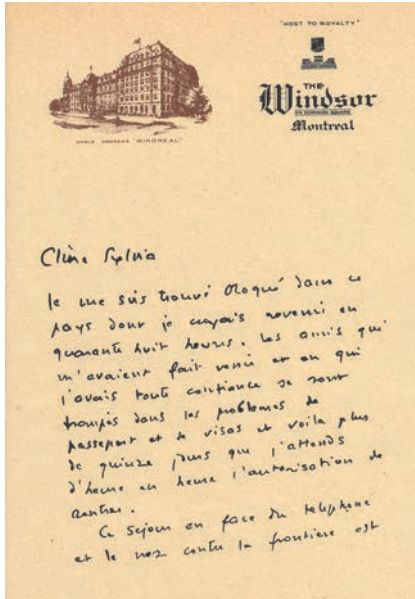 "HOST TO ROYALTY"
THE
Windsor
ON DOMINION SQUARE
Montreal
CABLE ADDRESS "WINDREAL"
Chère Sylvia
Je me suis trouvé bloqué dans ce
pays dont je croyais revenir en
quarante huit heures. Les amis qui
m'avaient fait venir et en qui
j'avais toute confiance se sont
trompés dans les problèmes de
passeport et de visas et voilà plus
de quinze jours que j'attends
d'heure en heure l'autorisation de
rentrer.
Ce séjour en face du téléphone
et le nez contre la frontière est